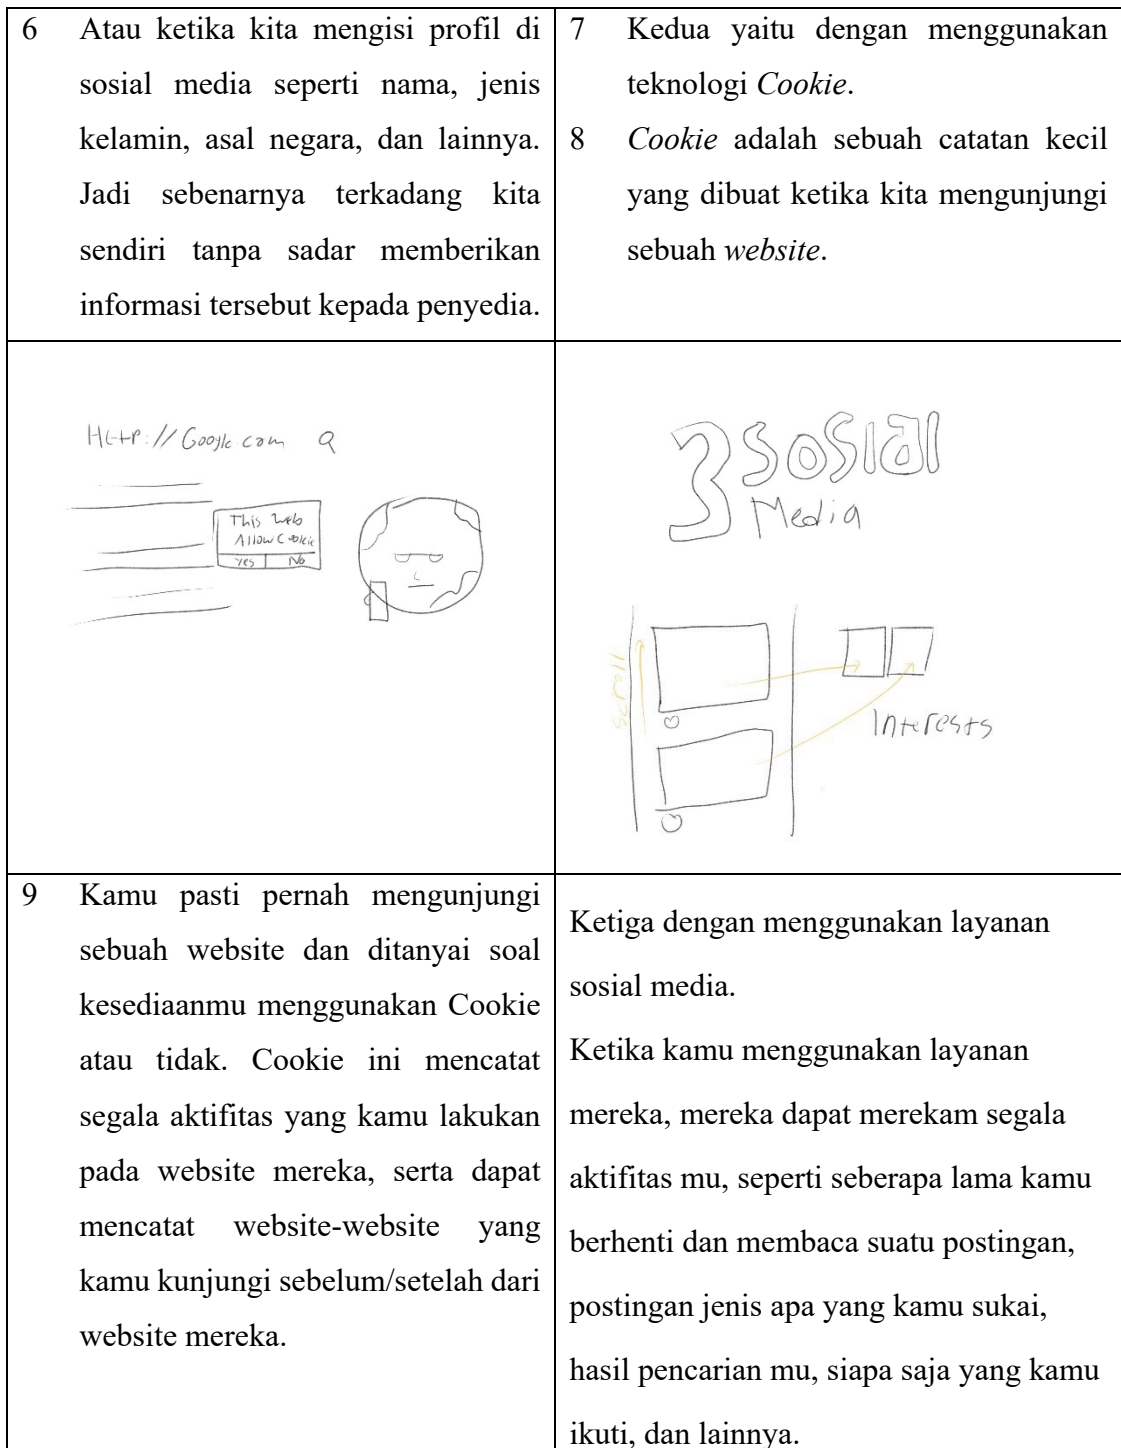 6 Atau ketika kita mengisi profil di
sosial media seperti nama, jenis
kelamin, asal negara, dan lainnya.
Jadi sebenarnya terkadang kita
sendiri tanpa sadar memberikan
informasi tersebut kepada penyedia.
7 Kedua yaitu dengan menggunakan
teknologi Cookie.
8 Cookie adalah sebuah catatan kecil
yang dibuat ketika kita mengunjungi
sebuah website.
Http://Google.com
This Web
Allow Cookie
Yes No
3 Sosial
Media
scroll
Interests
9 Kamu pasti pernah mengunjungi
sebuah website dan ditanyai soal
kesediaanmu menggunakan Cookie
atau tidak. Cookie ini mencatat
segala aktifitas yang kamu lakukan
pada website mereka, serta dapat
mencatat website-website yang
kamu kunjungi sebelum/setelah dari
website mereka.
Ketiga dengan menggunakan layanan
sosial media.
Ketika kamu menggunakan layanan
mereka, mereka dapat merekam segala
aktifitas mu, seperti seberapa lama kamu
berhenti dan membaca suatu postingan,
postingan jenis apa yang kamu sukai,
hasil pencarian mu, siapa saja yang kamu
ikuti, dan lainnya.